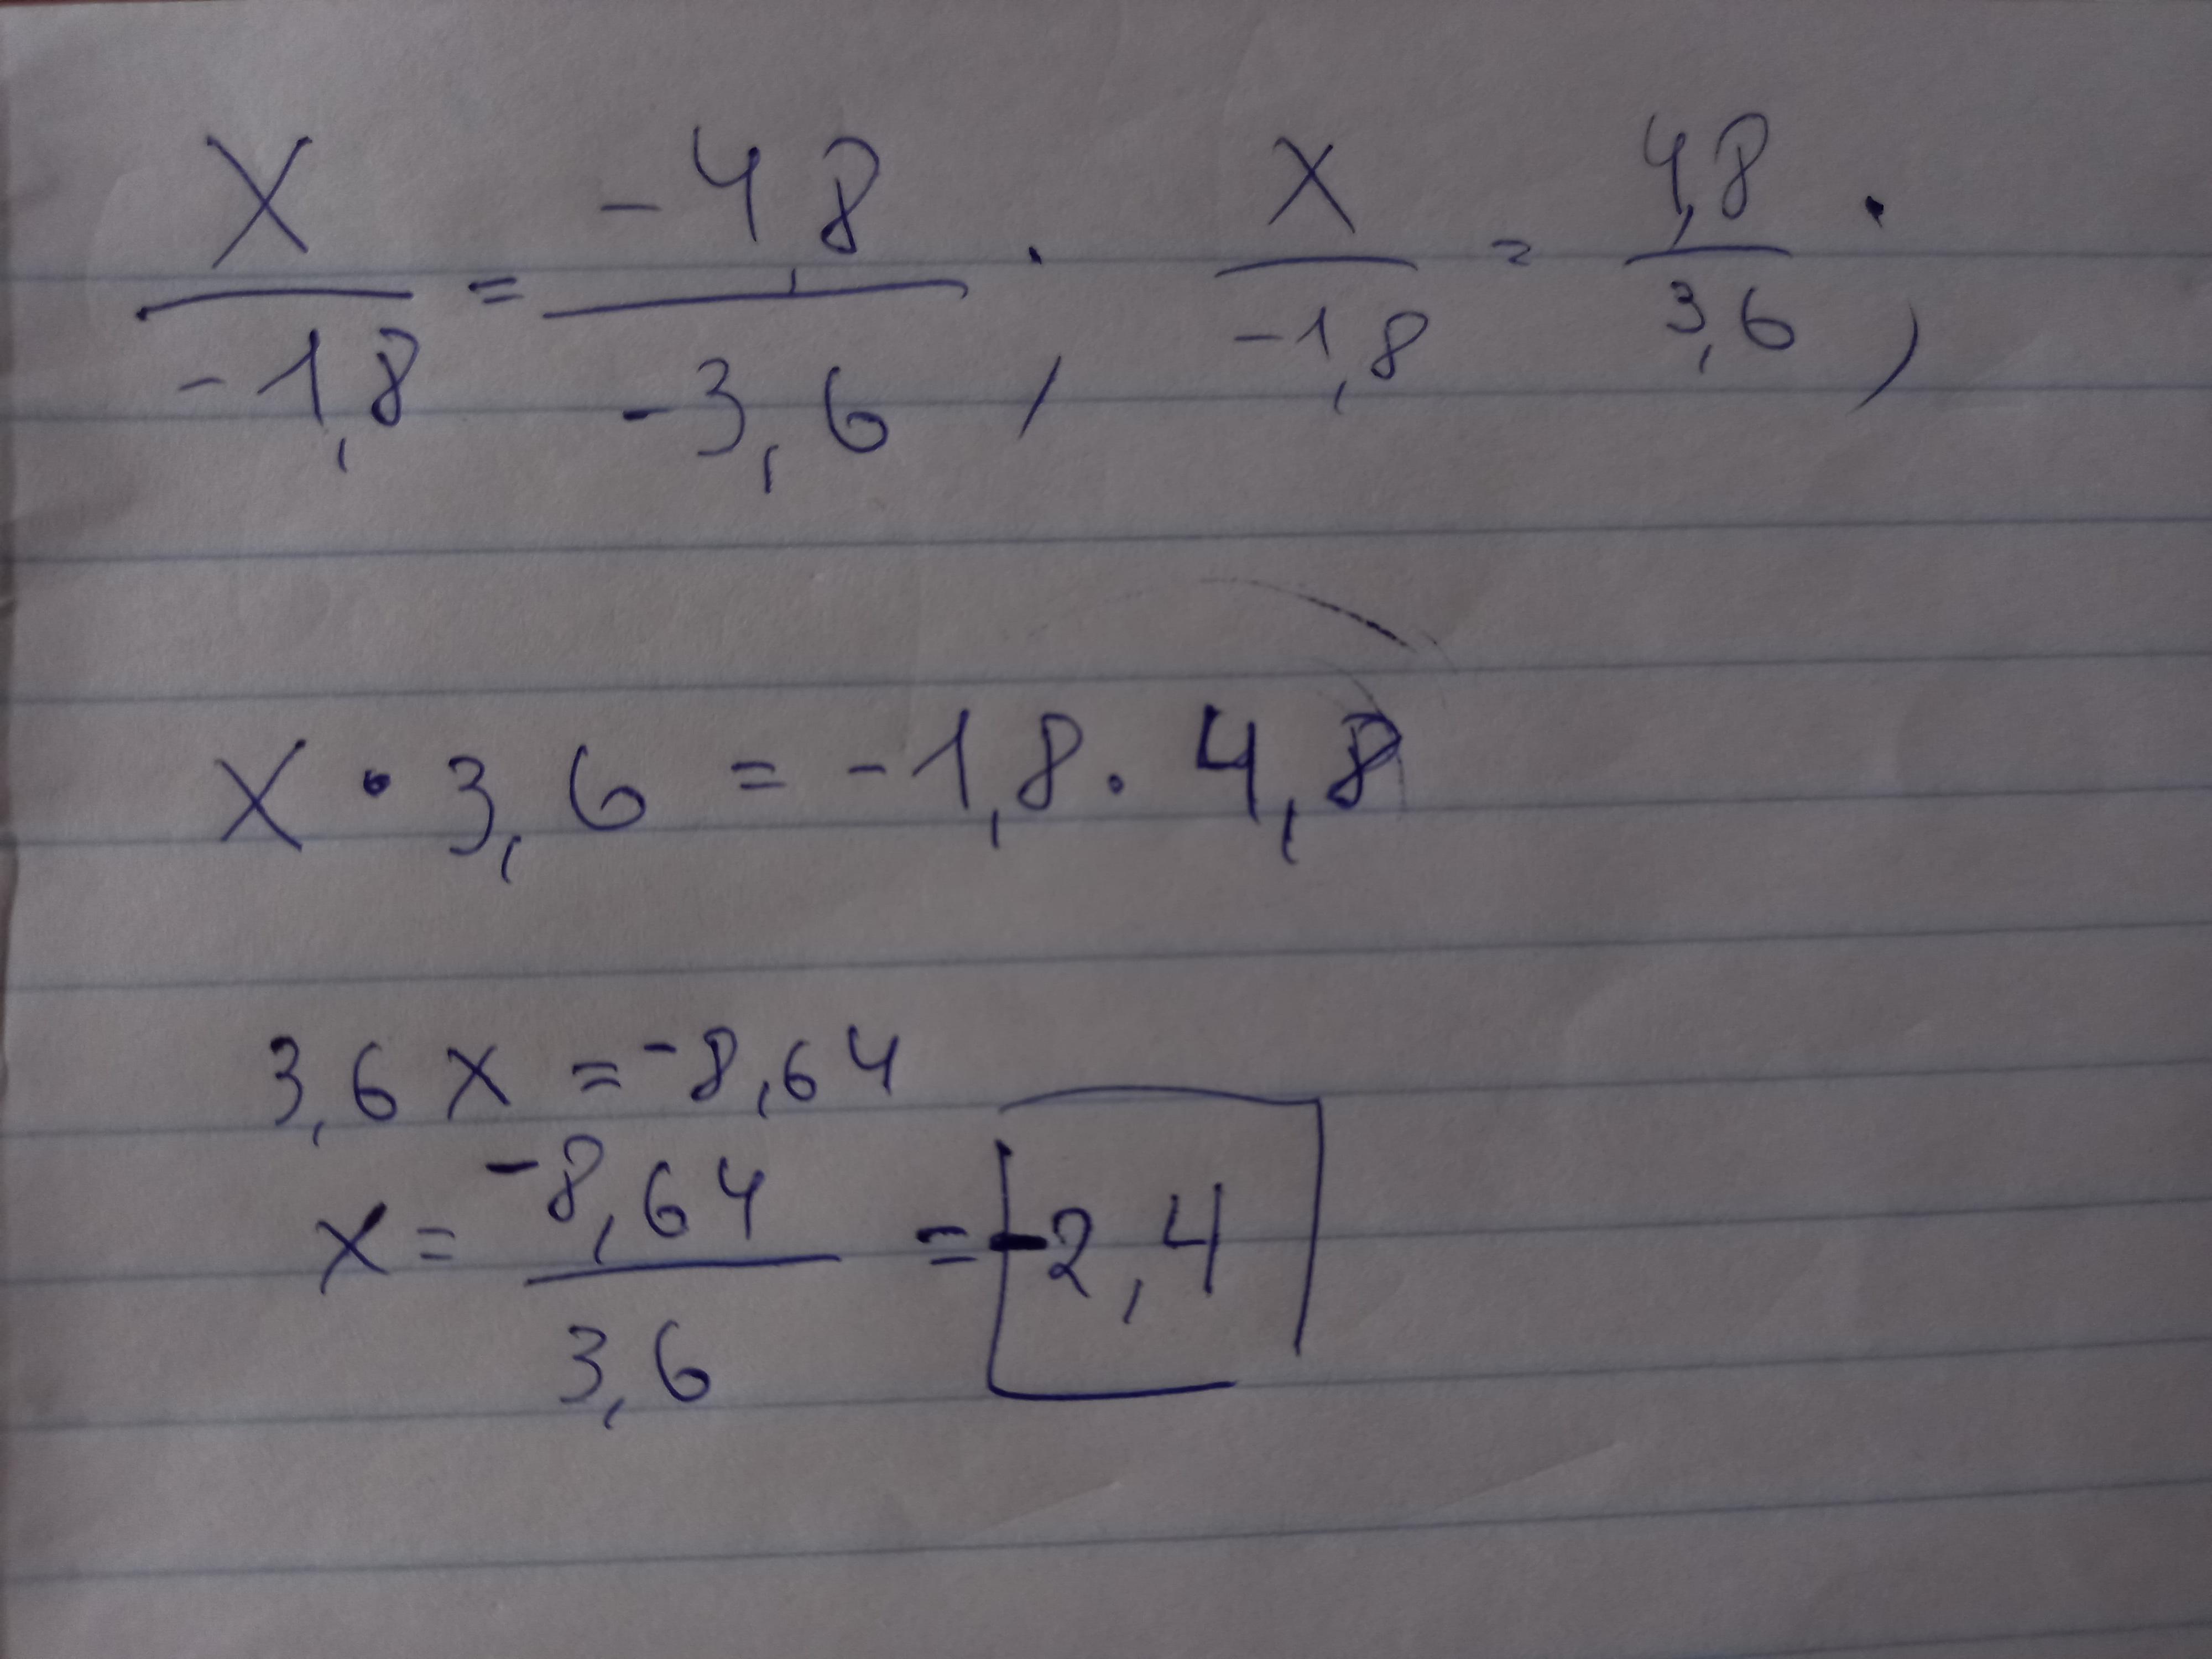 X/-1,8 = -4,8/-3,6 ; X/-1,8 = 4,8/3,6 ;
X · 3,6 = -1,8 · 4,8
3,6 X = -8,64
X = -8,64/3,6 = -2,4